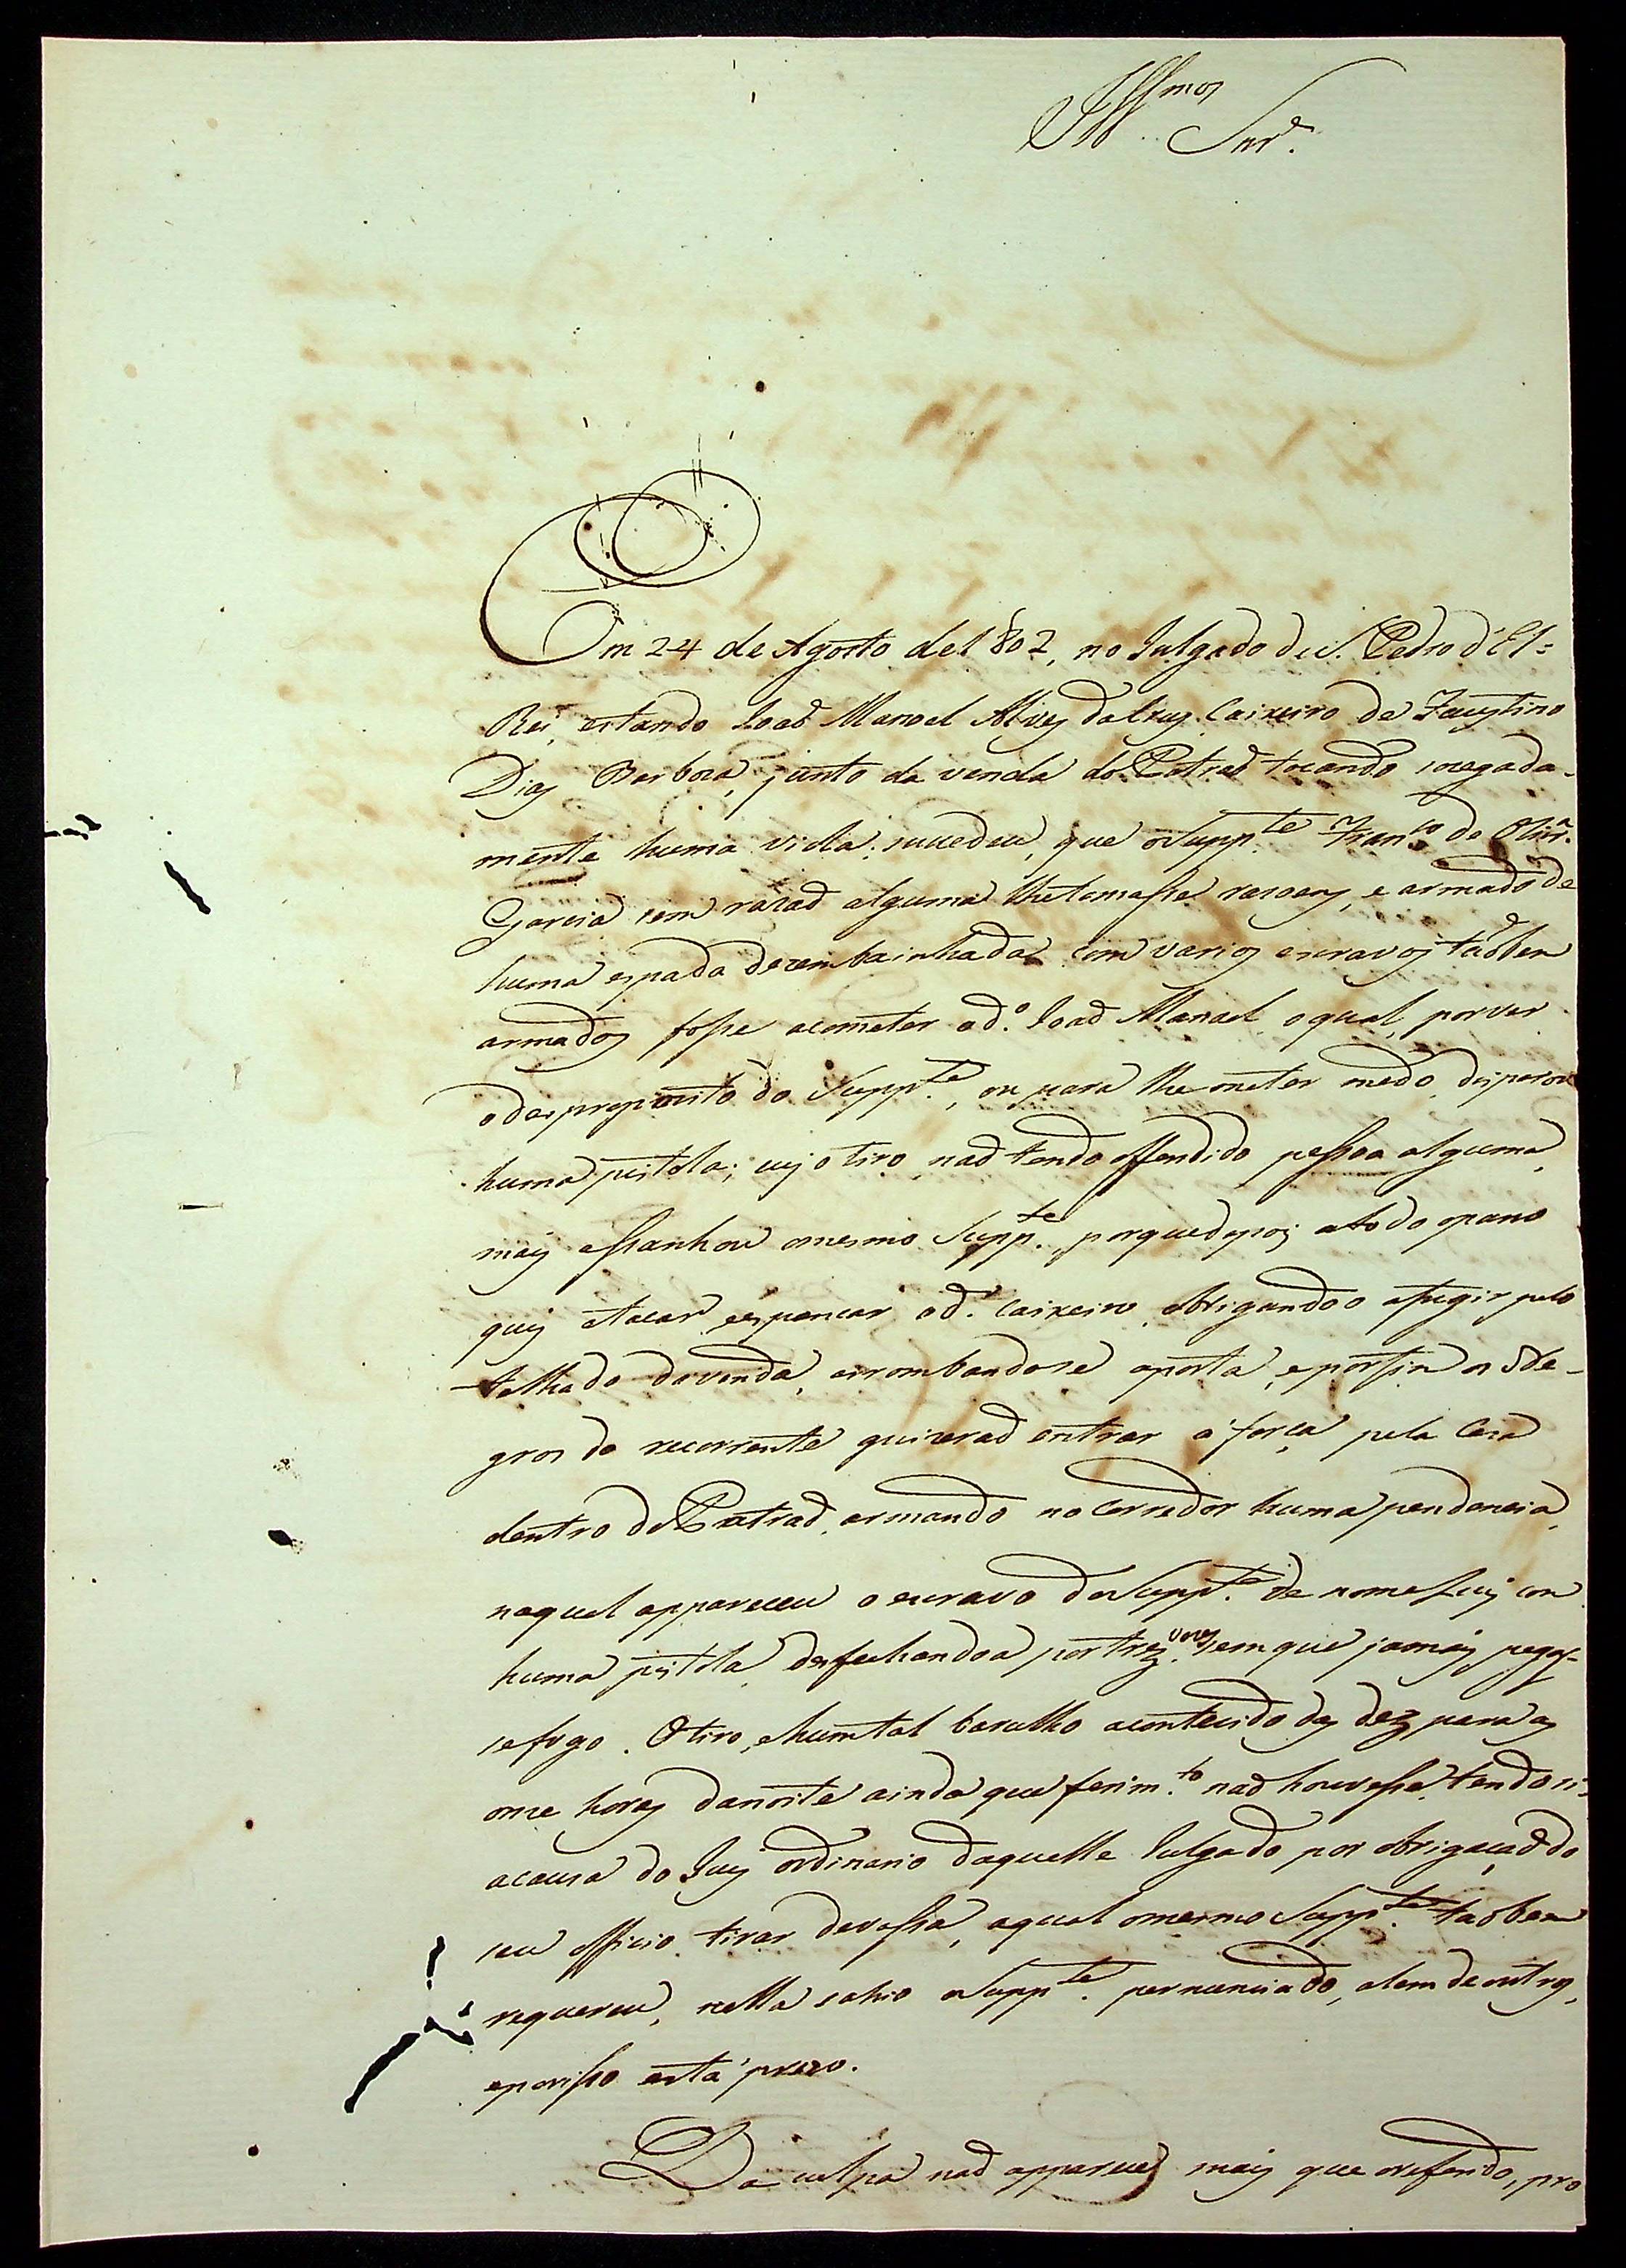 Ill.mos Snr.es
Em 24 de Agosto de 1802, no Julgado de S. Pedro d'El=
Rei, estando Joaõ Manoel Alves da Cruz, Caixeiro de Faustino
Dias Barboza, junto da venda do Patraõ tocando socegada-
mente huma viola; succedeu, que o Supp.te Fran.co de Olivr.a
Garcia sem razaõ alguma lhe tomasse razoens, e armado de
huma espada dezembainhada com varios escravos taõbem
armados fosse acometer ao d.o Joaõ Manoel, o qual, por ver
o despropozito do Supp.te, ou para lhe meter medo, disparou
huma pistola; cujo tiro, naõ tendo offendido pessoa alguma,
mais assanhou o mesmo Supp.te, porque depois a todo o pano
quis atacar, e espancar ao d.o Caixeiro, obrigando o a fugir pelo
telhado da venda, arrombandose a porta, e por fim os Ne-
gros do recorrente quizeraõ entrar á força pela Caza
dentro do Patraõ, armando no Corredor huma pendencia,
na qual appareceu o escravo do Supp.te de nome Luis com
huma pistola, desfechandoa por trez vezes, sem que jamais pegas-
se fogo. O tiro, e hum tal barulho acontecido das dez para as
onze horas da noite ainda que ferim.to naõ houvesse, tendo si-
a cauza do Juiz ordinario daquelle Julgado por obrigaçaõ do
seu officio tirar devassa, a qual o mesmo Supp.te taõbem
requereu, nella sahio o Supp.te pernunciado, alem de outros,
e por isso está prezo.
Da culpa naõ apparece mais que o referido, pro